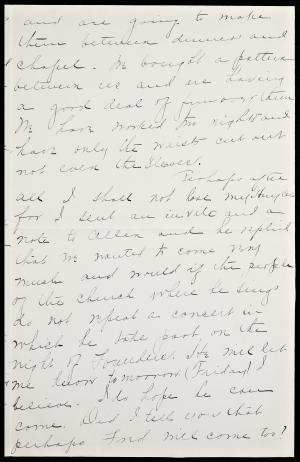 and are going to make
them between dinner and
chapel. We bought a pattern
between us and are having
a good deal of fun over them
We have worked two nights and
have only the waists cut out
not even the sleeves.
Perhaps after
all I shall not lose my
for I sent an invite and a
note to Allen and he replied
that he wanted to come very
much and would if the people
of the church where he sings
do not repeat a concert in
which he take part on the
night of Founders. He will let
me know tomorrow (Friday) I
believe. I do hope he can
come. Did I tell you that
perhaps Fred will come too?